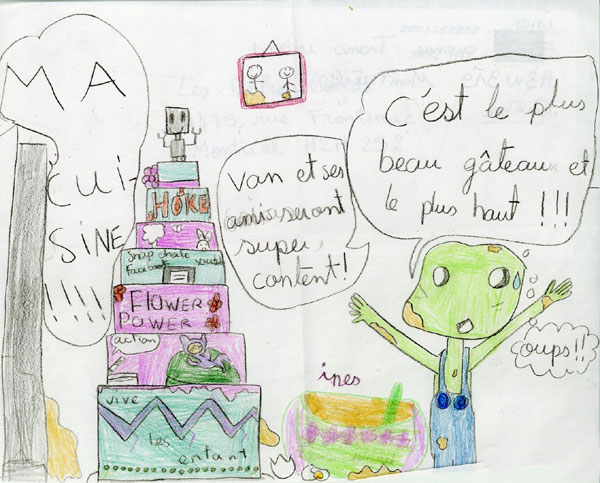 MA
CUI-
SINE
!!!!
HOKE
Snap chate
Facebook youtube
FLOWER
POWER
action
vive
les
enfant
Van et ses
amis seront
super
content!
C'est le plus
beau gâteau et
le plus haut !!!
oups!!
ines